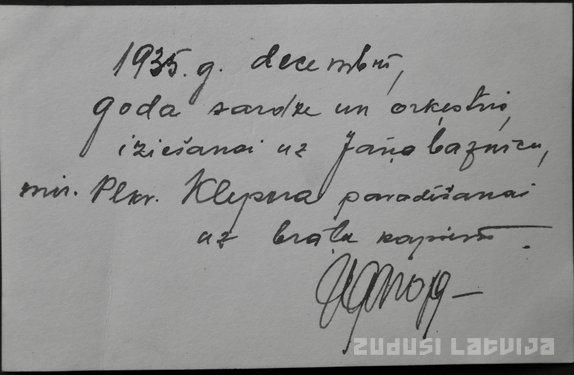 1935. g. decembrī,
goda sardze un orķestris,
iziešanai uz Jāņa baznīcu,
mir. Plkv. Klepera pavadīšanai
uz brāļu kapiem.
ZUDUSI LATVIJA